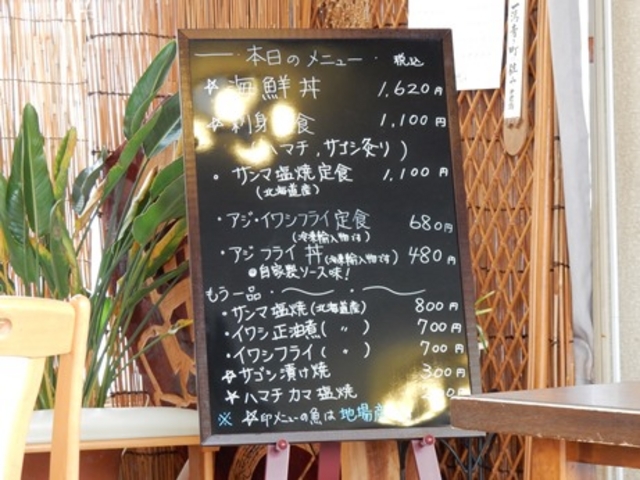 本日のメニュー 税込
☆海鮮丼 1,620円
☆刺身定食 1,100円
(ハマチ,サゴシ炙り)
。サンマ塩焼定食 1,100円
(北海道産)
・アジ・イワシフライ定食 680円
(冷凍輸入物です)
・アジフライ丼(冷凍輸入物です) 480円
◎自家製ソース味!
もう一品・
・サンマ塩焼(北海道産) 800円
・イワシ正油煮( 〃 ) 700円
・イワシフライ( 〃 ) 700円
☆サゴシ漬け焼 300円
☆ハマチカマ塩焼 円
※ ☆印メニューの魚は地場産